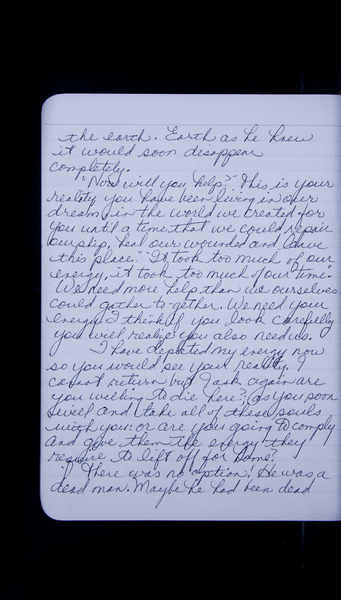 the earth. Earth as he knew
it would soon desappear
completely.
"Now will you help?" This is your
reality, you have been living in our
dream, in the world we created for
you until a time that we could repair
our ship, heal our wounded and leave
this place." "It took too much of our
energy, it took too much of our time.
We need more help than we ourselves
could gather to-gether. We need your
energy I think if you look carefully
you will realize you also need us.
I have depleted my energy now
so you would see your reality. I
cannot return but I ask again are
you willing to die here?, as you soon
will and take all of these souls
with you: or are you going to comply
and give them the energy they
require to lift off for home?
There was no option! He was a
dead man. Maybe he had been dead